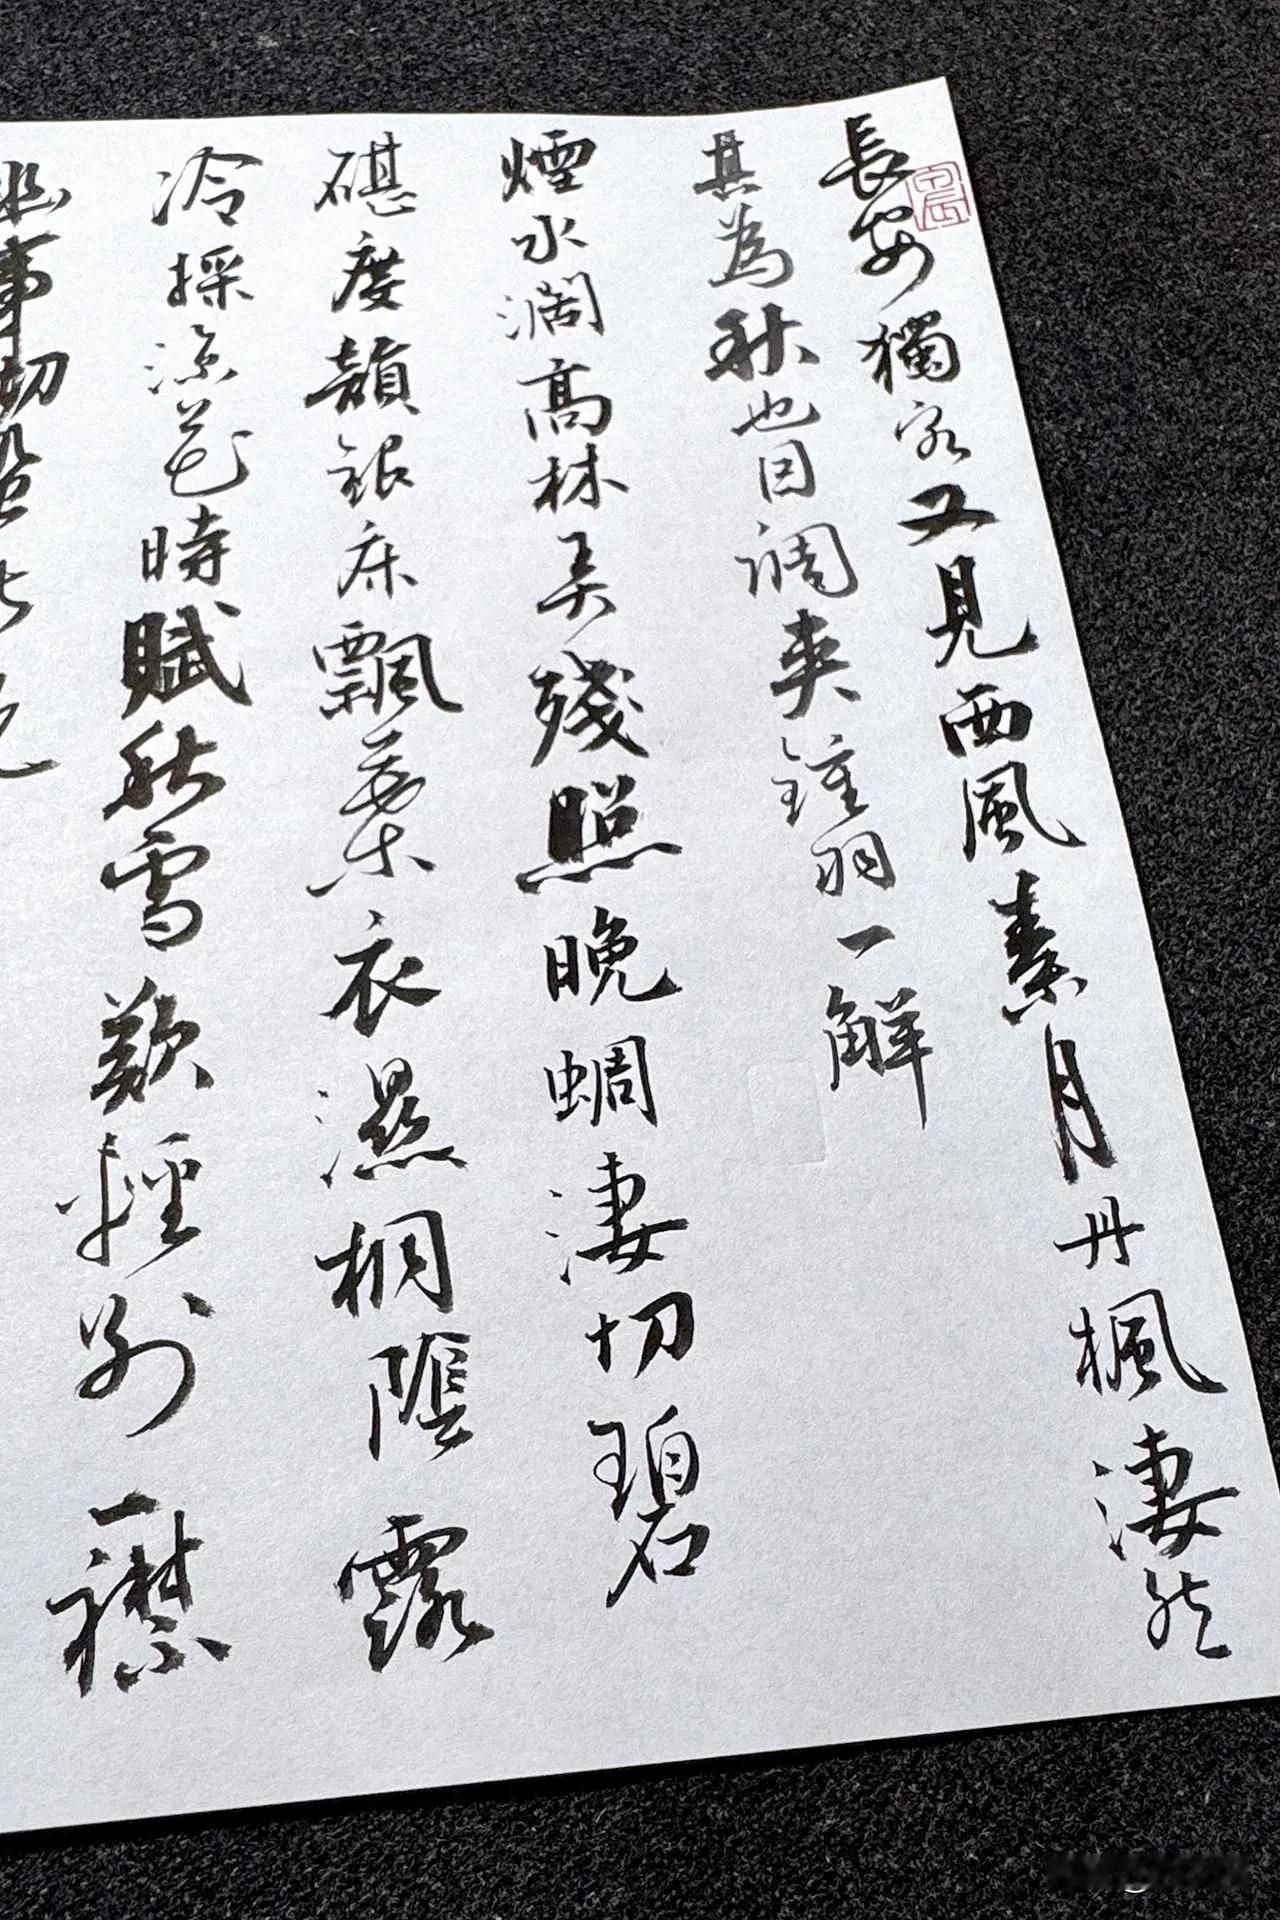 長安獨客又見西風素月丹楓淒然
其為秋也因調夾鍾羽一解
煙水濶高林弄殘照晚蜩淒切碧
碪度韻銀床飄葉衣濕桐陰露
冷採涼花時賦秋雪歎輕別一襟
幽事砌蛩